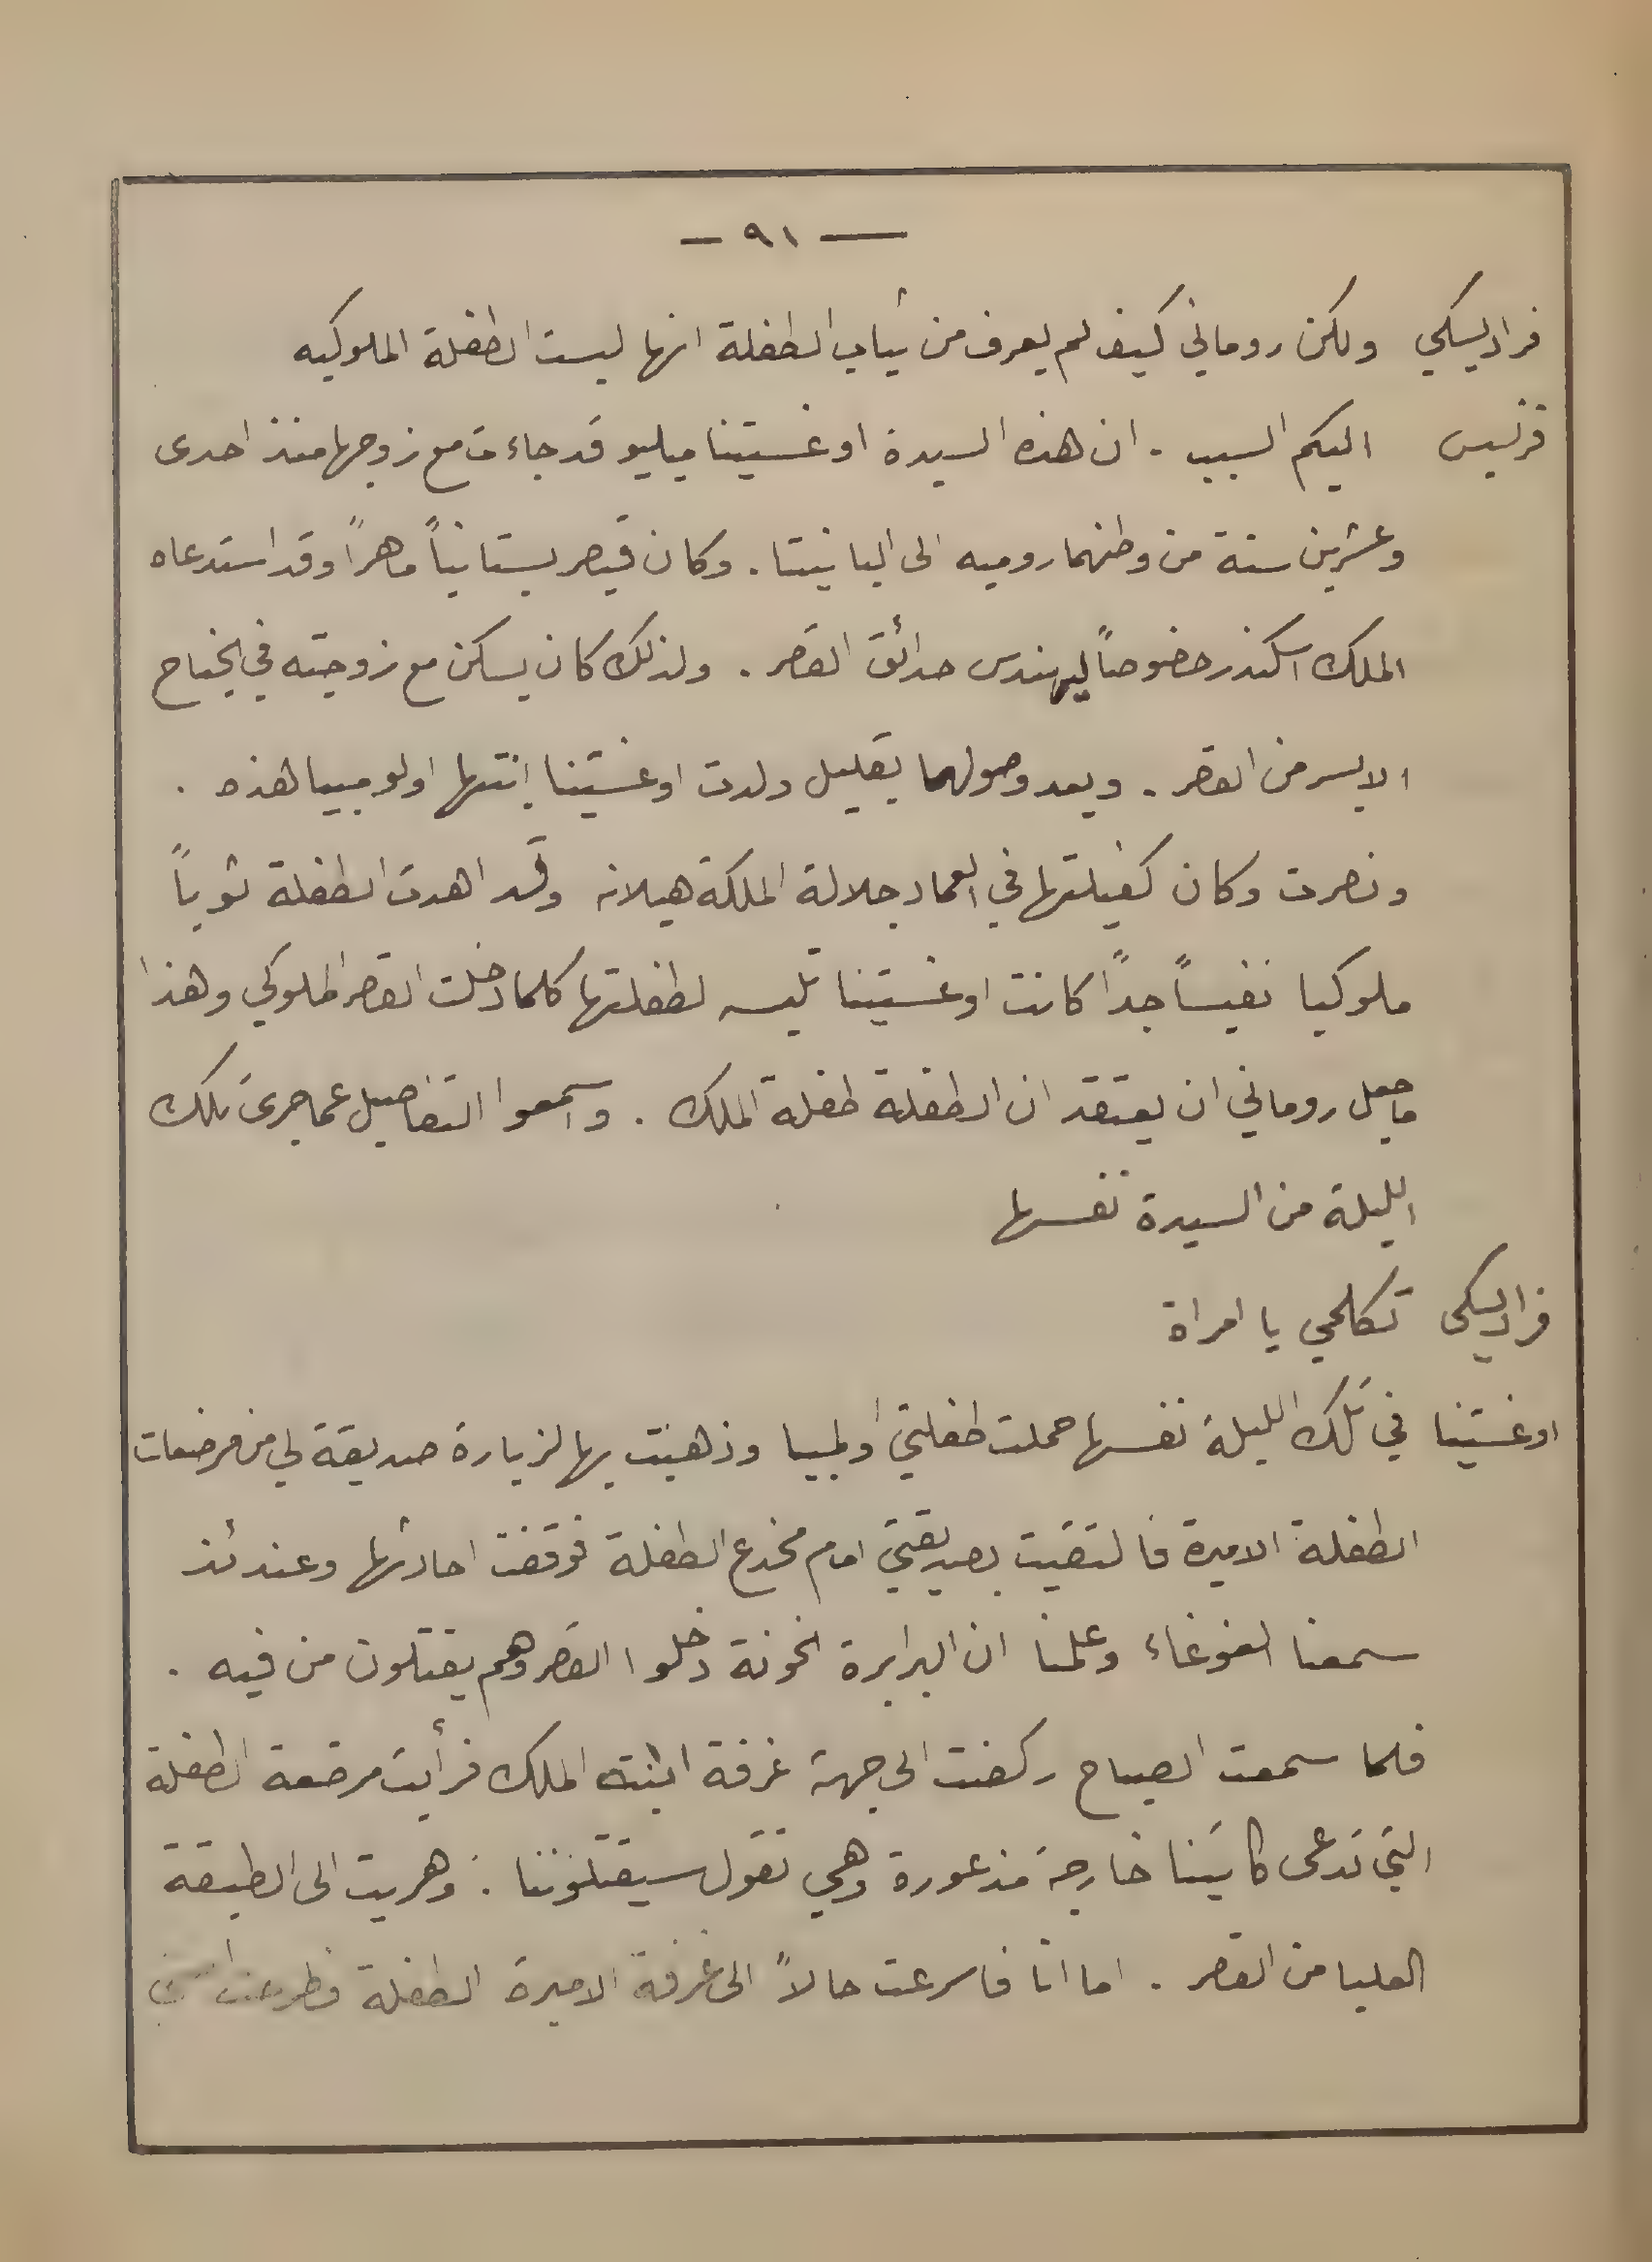 — ٩١ —
فراديسكي ولكن روماني كيف لم يعرف من ثياب الطفلة انها ليست الطفلة الملوكيه
فرنيس اليكم السبب . ان هذه السيدة اوغستينا ميليو قد جاءت مع زوجها منذ احدى
وعشرين سنة من وطنهما روميه الى اليانيتا . وكان قيصر بستانياً ماهراً وقد استدعاه
الملك اسكندر خصوصاً ليهندس حدائق القصر . ولذلك كان يسكن مع زوجته في الجناح
الايسر من القصر . وبعد وصولهما بقليل ولدت اوغستينا إبنتها اولومبيا هذه .
ونصرت وكان كفيلتها في العماد جلالة الملكة هيلانه وقد اهدت الطفلة ثوباً
ملوكيا نفيساً جداً كانت اوغستينا تلبسه لطفلتها كلما دخلت القصر الملوكي وهذا
ما جعل روماني ان يعتقد ان الطفلة طفلة الملك . واسمعوا التفاصيل عما جرى تلك
الليلة من السيدة نفسها
فراديسكي تكلمي يا امراة
اوغستينا في تلك الليلة نفسها حملت طفلتي أولمبيا وذهبت بها لزيارة صديقة لي من مرضعات
الطفلة الاميرة فالتقيت بصديقتي امام مخدع الطفلة فوقفت احادثها وعندئذ
سمعنا الغوغاء وعلمنا ان البرابرة الخونة دخلوا القصر وهم يقتلون من فيه .
فلما سمعت الصياح ركضت الى جهة غرفة ابنته الملك فرأيت مرضعة الطفلة
التي تدعى كاتينا خارجة مذعورة وهي تقول سيقتلوننا . وهربت الى الطبقة
العليا من القصر . اما انا فاسرعت حالاً الى غرفة الاميرة الطفلة فطرحت